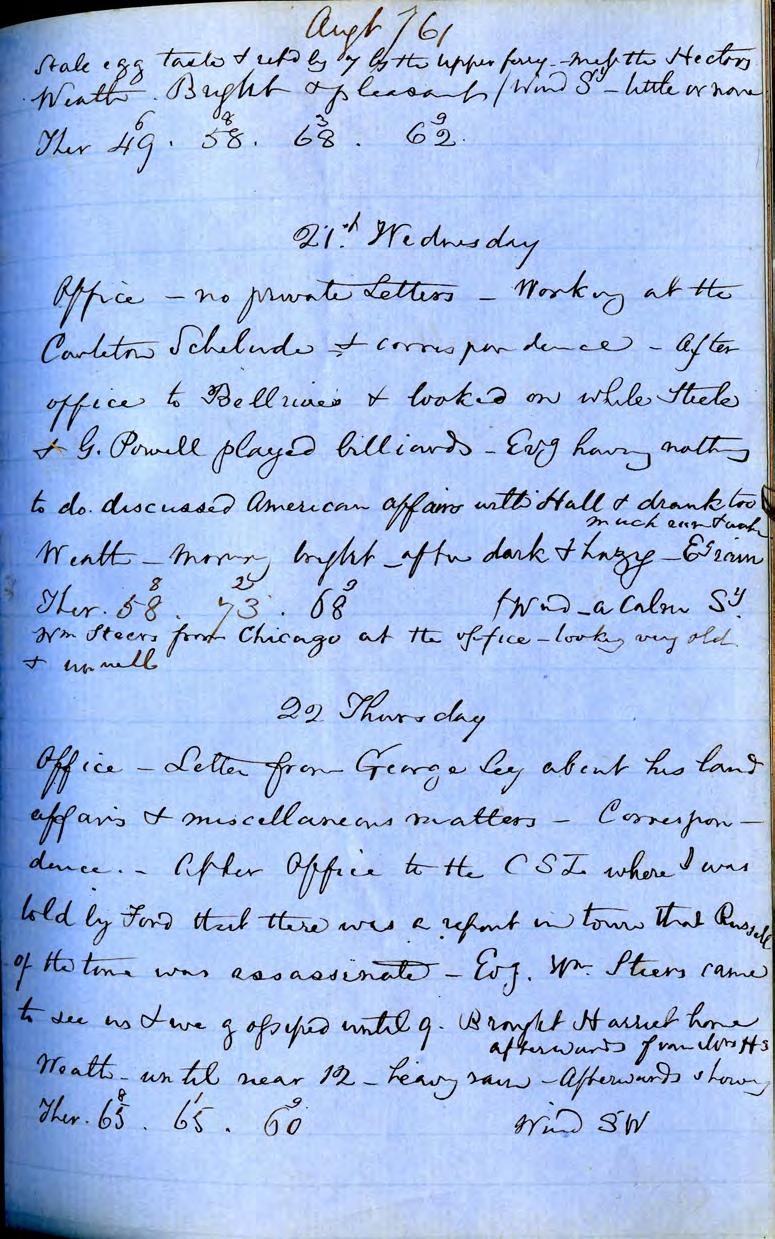 Augt / 61
Stale egg taste & retd by 7 by the upper ferry - met the Hectors
Weath. Bright & pleasant / Wind Sy - little or none
6 8 3 9
Ther 49. 58. 68. 62.
21st Wednesday
Office - no private Letters - Working at the
Carleton Schelude & correspondence - After
office to & looked on while Steele
& G. Powell played billiards - Evg having nothing
to do. discussed American affairs with Hall & drank too
much rum & water
Weath - Morning bright - after dark & hazy - Eg rain
8 2½ 9
Ther. 58. 73. 68 / Wind - a calm Sy.
Wm Steers from Chicago at the office - looking very old
& unwell
22 Thursday
Office - Letter from George Ley about his land
affairs & miscellaneous matters - Correspon-
dence. - After Office to the C S I where I was
told by Ford that there was a report in town that Russell
of the time was assassinated - Evg. Wm. Steers came
to see us & we gossiped until 9. Brought Harriet home
afterwards from Mrs Hs
Weath - until near 12 - heavy rain - Afterwards showery
8 1 9
Ther. 65. 65. 60 Wind SW